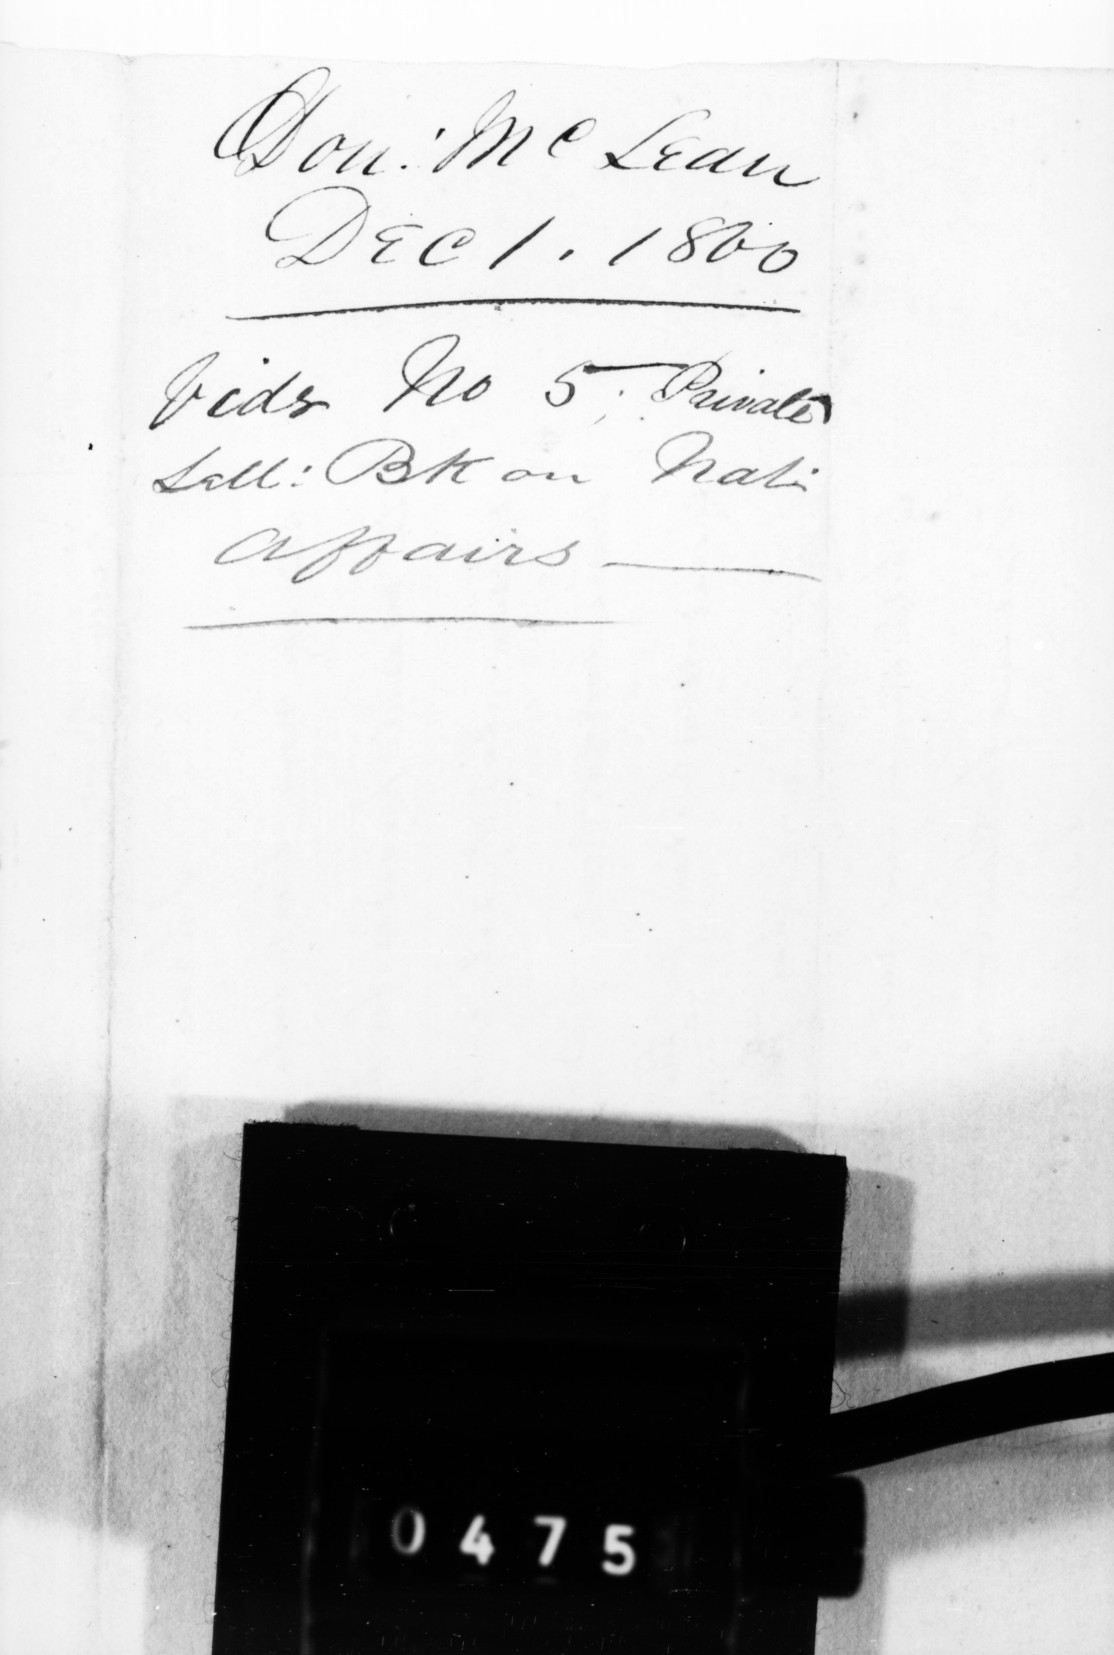 Don: McLean
DEC 1. 1860
Vide No 5; Private
Lett: BK on Natl:
Affairs
0475